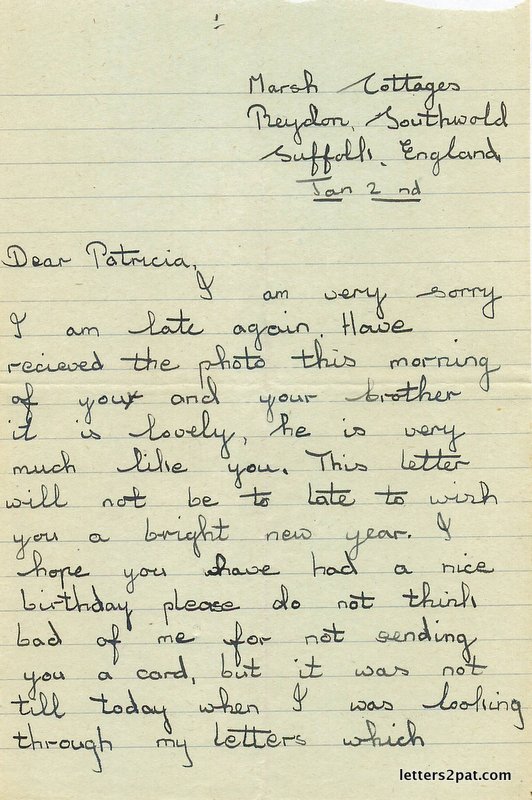 Marsh Cottages
Reydon, Southwold
Suffolk, England,
Jan 2 nd
Dear Patricia,
I am very sorry
I am late again. Have
recieved the photo this morning
of your and your brother
it is lovely, he is very
much like you. This letter
will not be to late to wish
you a bright new year. I
hope you have had a nice
birthday please do not think
bad of me for not sending
you a card, but it was not
till today when I was looking
through my letters which
letters2pat.com